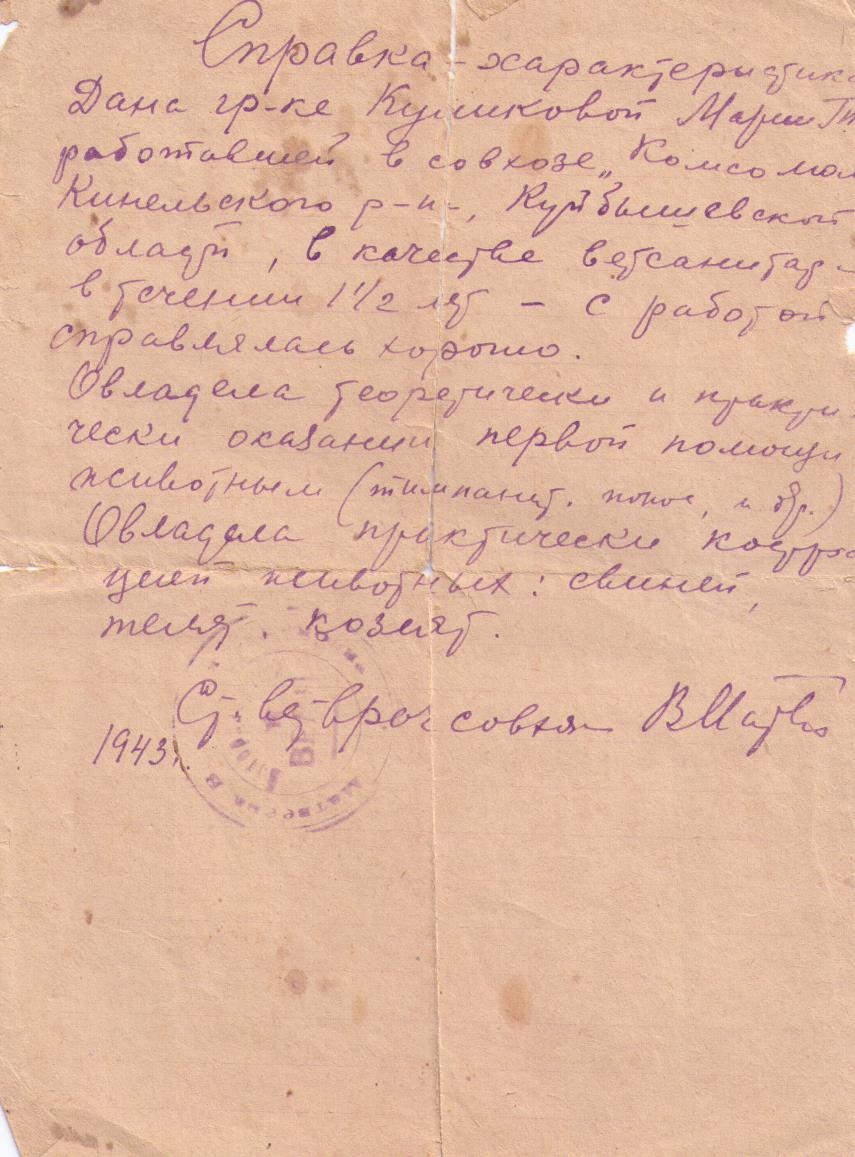 Справка-характеристика
Дана гр-ке Куликовой Марии Т
работавшей в совхозе „Комсомол
Кинельского р-н-, Куйбышевской
области, в качестве ветсанитар-
в течении 1 1/2 лет – с работой
справлялась хорошо.
Овладела теоретически и практи-
чески оказании первой помощи
животным (тимпанит. понос, и др.)
Овладела практически кастра
цией животных: свиней,
телят. козлят.
Ст. ветврач совхоза В Матве
1943.
Матвеева В